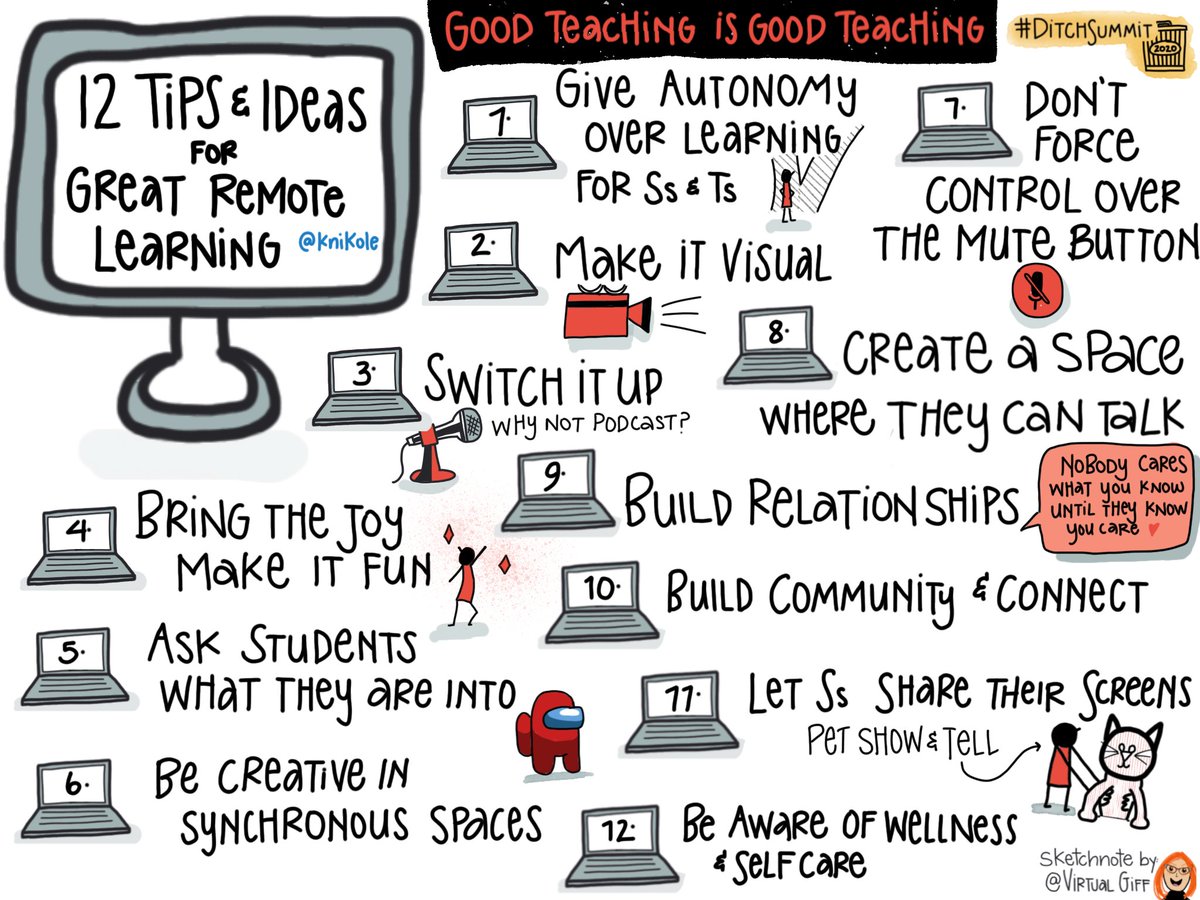 GOOD TEACHING IS GOOD TEACHING
#DITCHSUMMIT
2020
12 TIPS & IDEAS
FOR
GREAT REMOTE
LEARNING @KniKole
1.
GIVE AUTONOMY
OVER LEARNING
FOR Ss & Ts
2.
MAKE IT VISUAL
3.
SWITCH IT UP
WHY NOT PODCAST?
4.
BRING THE JOY
MAKE IT FUN
5.
ASK STUDENTS
WHAT THEY ARE INTO
6.
BE CREATIVE IN
SYNCHRONOUS SPACES
7.
DON'T
FORCE
CONTROL OVER
THE MUTE BUTTON
8.
CREATE A SPACE
WHERE THEY CAN TALK
9.
BUILD RELATIONSHIPS
NOBODY CARES
WHAT YOU KNOW
UNTIL THEY KNOW
YOU CARE
10.
BUILD COMMUNITY & CONNECT
11.
LET Ss SHARE THEIR SCREENS
PET SHOW & TELL
12.
BE AWARE OF WELLNESS
& SELF CARE
SKETCHNOTE BY
@VIRTUAL GIFF